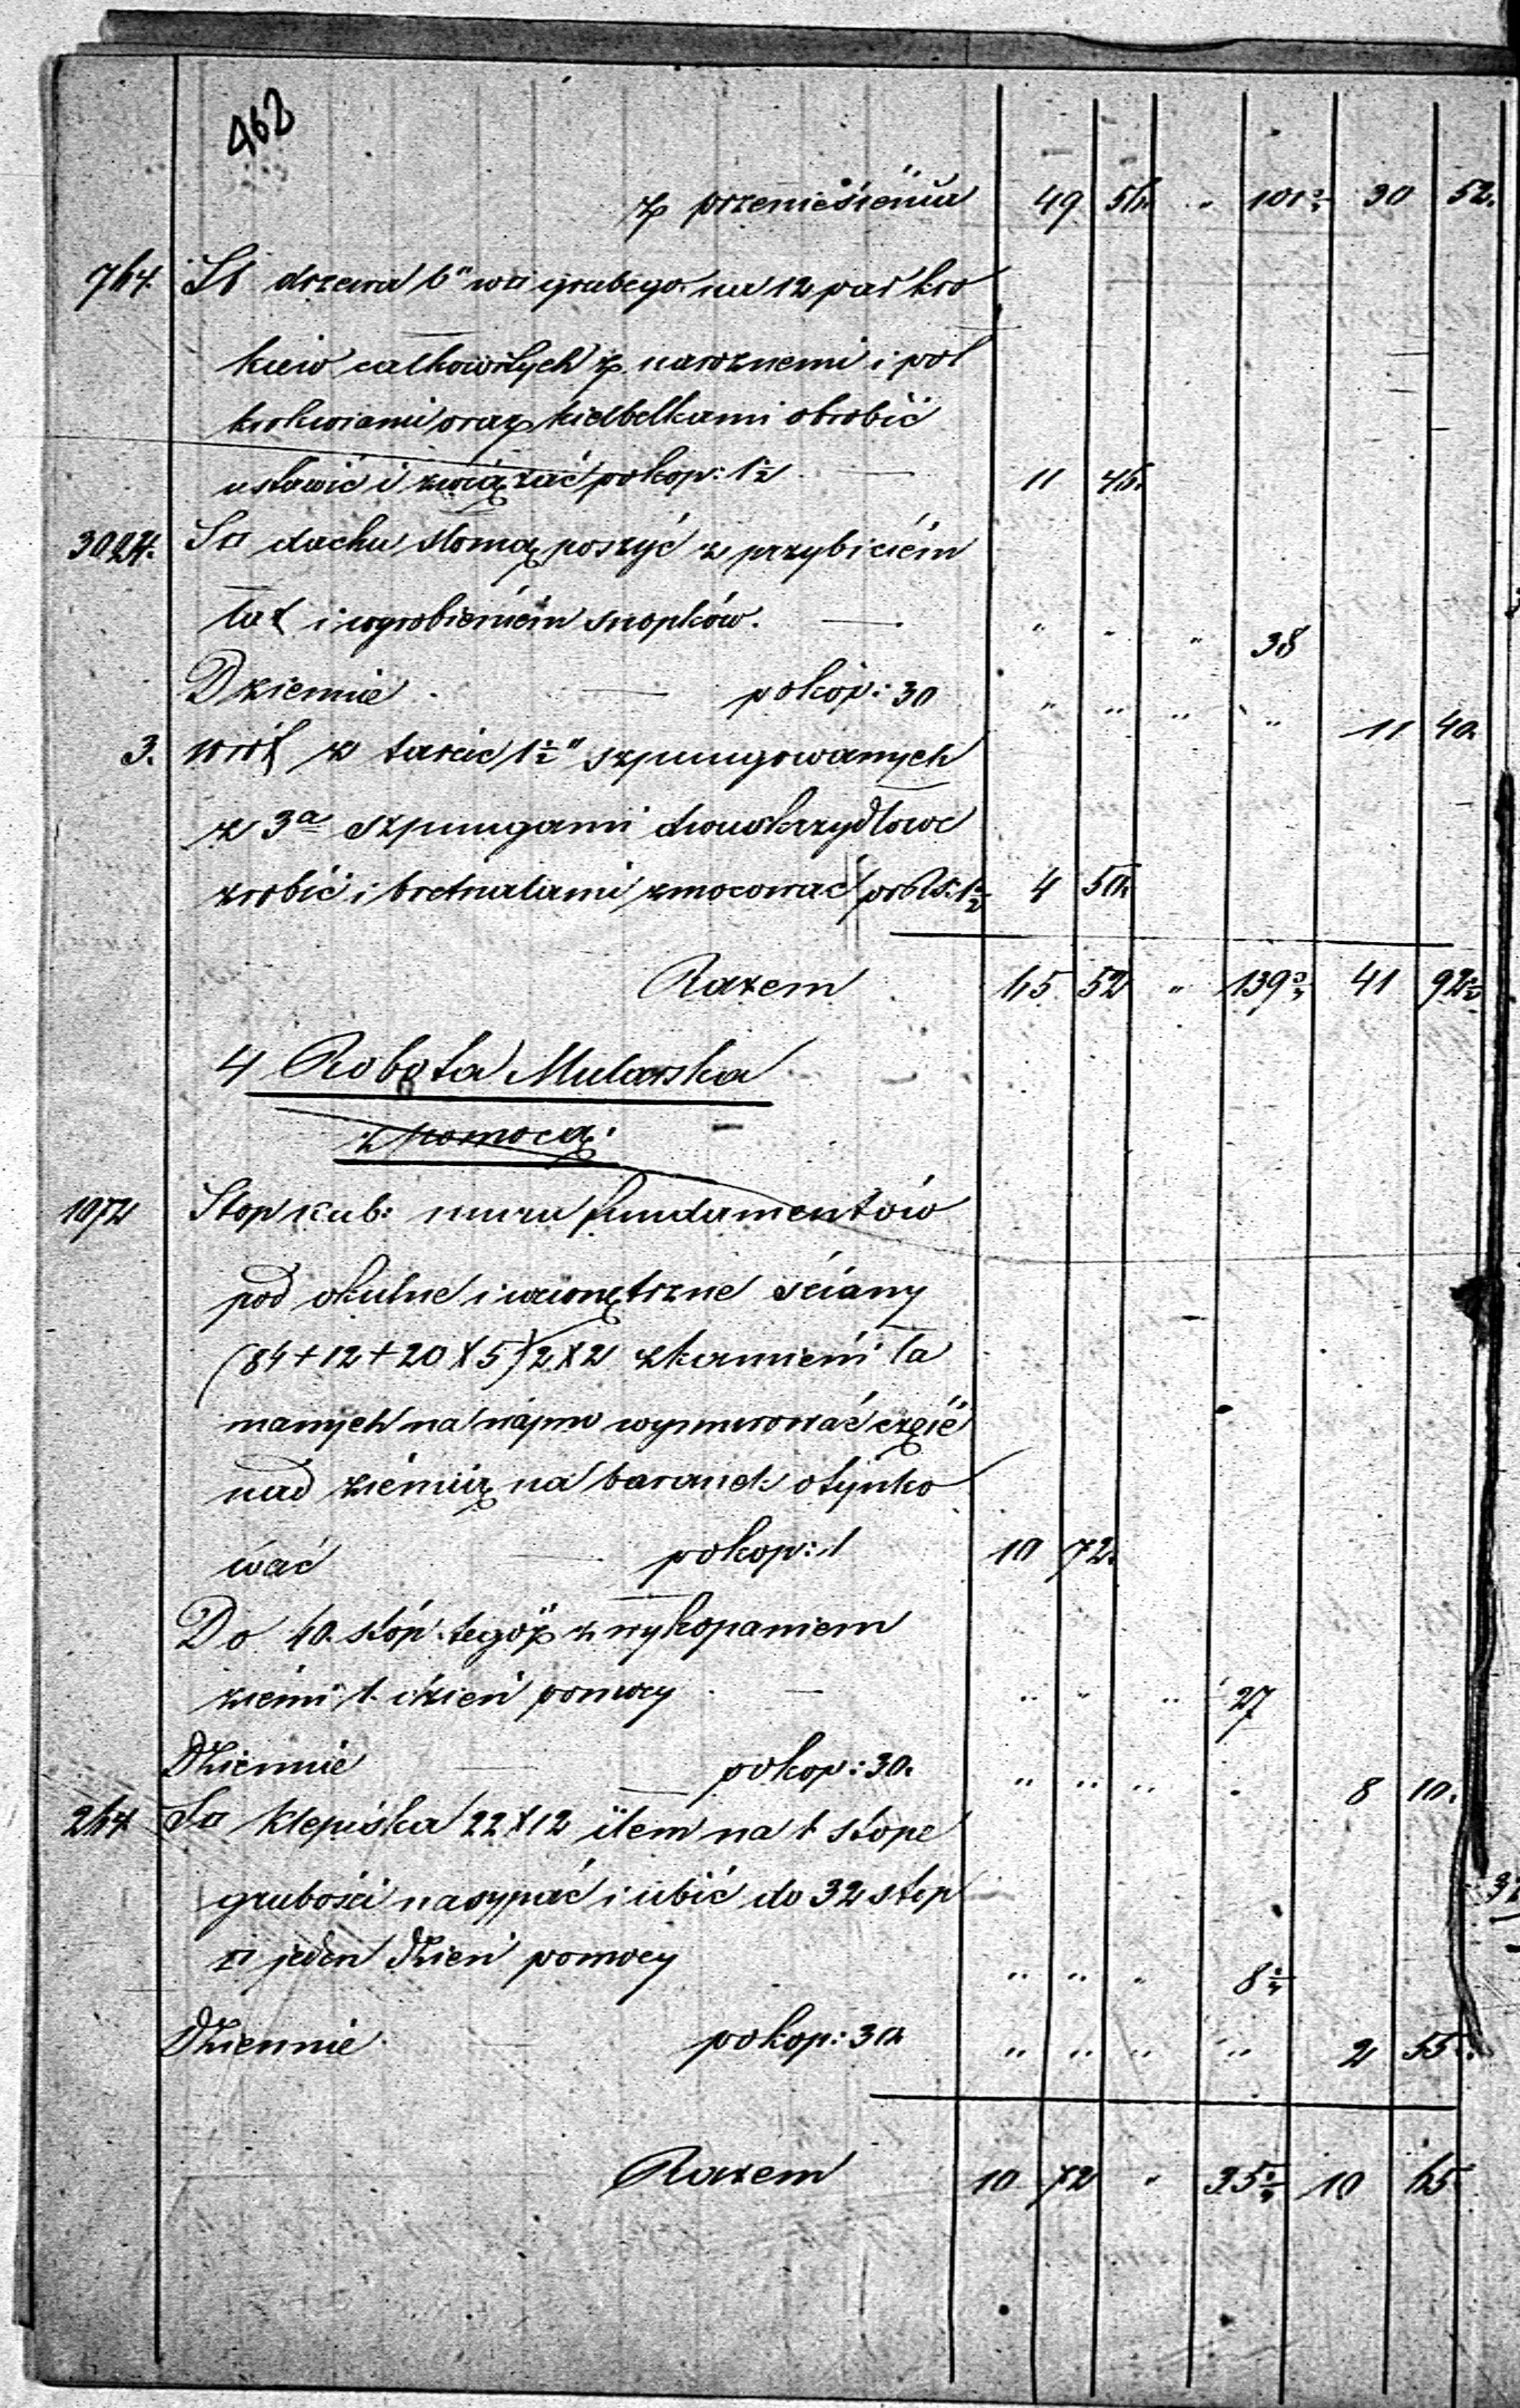 462
z przeniesienia 49 56. " 101 3/4 30 52.
764. St drzewa 6" w□ grubego na 12 par kro
kiew całkowitych z narożnemi i pół
krokwiami oraz kielbelkami obrobić
ustawić i związać po kop: 1½ — 11 46.
3024. S□ dachu słomą poszyć z przybiciem
łat i wyrobieniem snopków. — " " " 38
Dziennie — po kop: 30 " " " " 11 40.
3. wrót z tarcic 1½" szpungowanych
z 3a szpungami dwuskrzydłowe
zrobić i bretnalami zmocować po Rs. 1½ 4 50.
Razem 65 52 " 139 3/4 41 92½
4 Robota Mularska
z pomocą.
1072 Stop kub: muru fundamentów
pod okulne i wewnętrzne ściany
(84+12+20X5)2X2 z kamieni ła
manych na wapno wymurować część
nad ziemią na baranek otynko
wać — po kop: 1 10 72.
Do 40. stóp tegoż z wykopaniem
ziemi 1. dzień pomocy — " " " 27
Dziennie — po kop: 30. " " " " 8 10.
264 S□ klepiska 22X12 iłem na 1 stopę
grubości nasypać i ubić do 32 stóp
□ jeden dzień pomocy " " " 8 2/4
Dziennie — po kop: 30 " " " " 2 55.
Razem 10 72 " 35 2/4 10 65